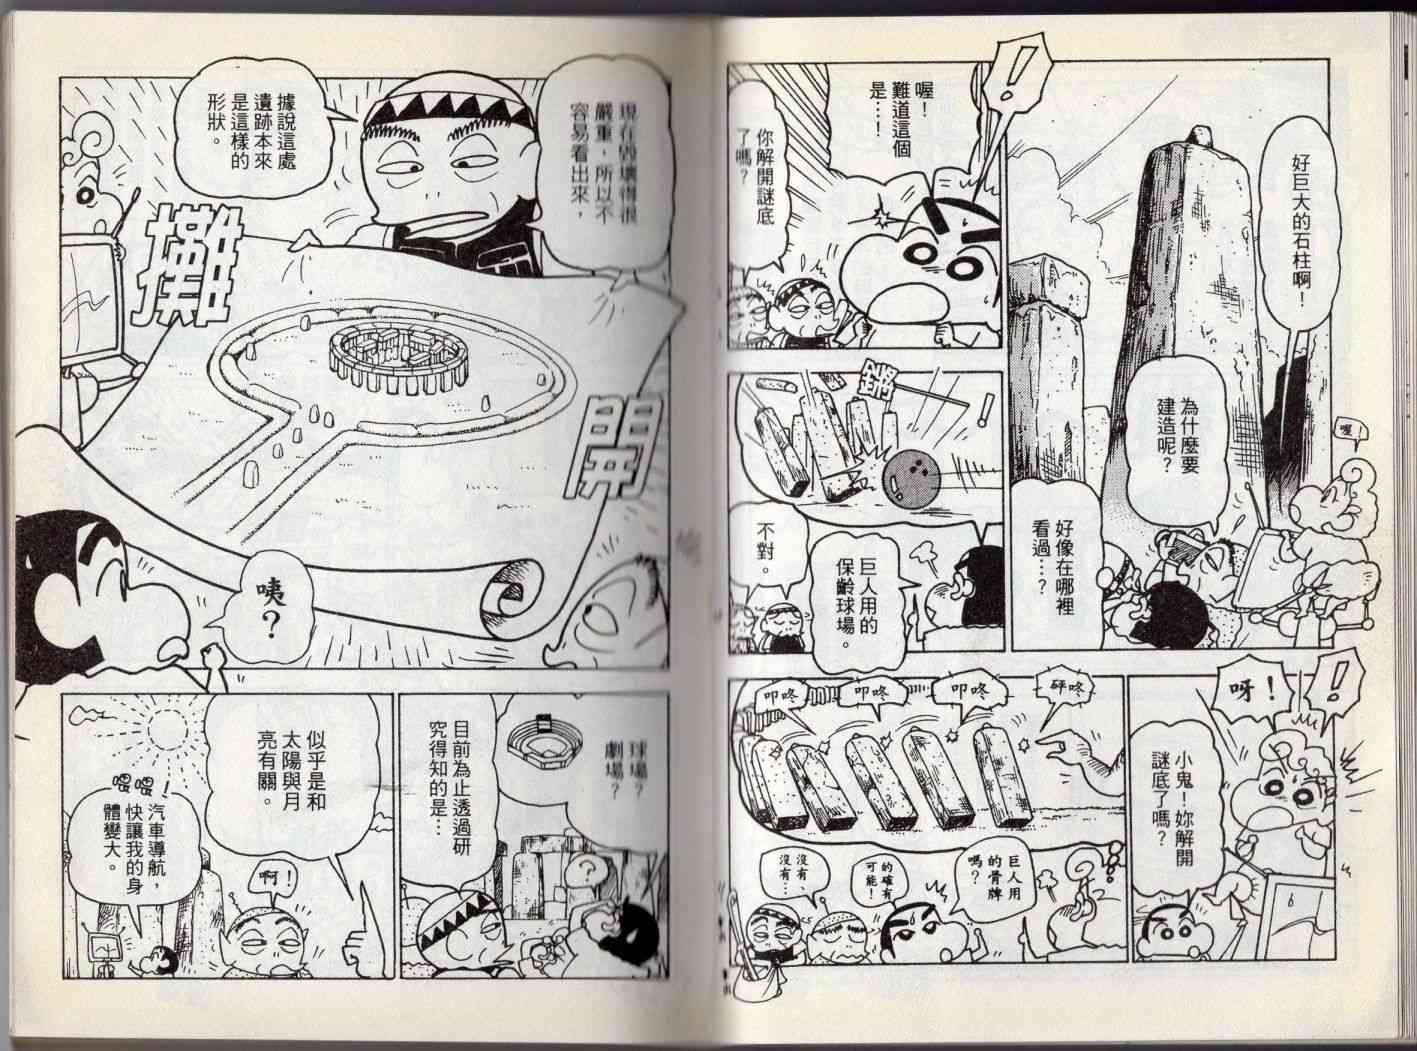 好巨大的石柱啊！
為什麼要
建造呢？
喔！
好像在哪裡
看過…？
！
喔！
難道這個
是…！
你解開謎底
了嗎？
！
巨人用的
保齡球場。
不對。
！
呀！
小鬼！妳解開
謎底了嗎？
砰咚
叩咚
叩咚
叩咚
巨人用
的骨牌
嗎？
的確有
可能！
沒有、
沒有…
現在毀壞得很
嚴重，所以不
容易看出來，
據說這處
遺跡本來
是這樣的
形狀。
攤
開
咦？
球場？
劇場？
？
目前為止透過研
究得知的是…
似乎是和
太陽與月
亮有關。
啊！
喂喂！
汽車導航，
快讓我的身
體變大。